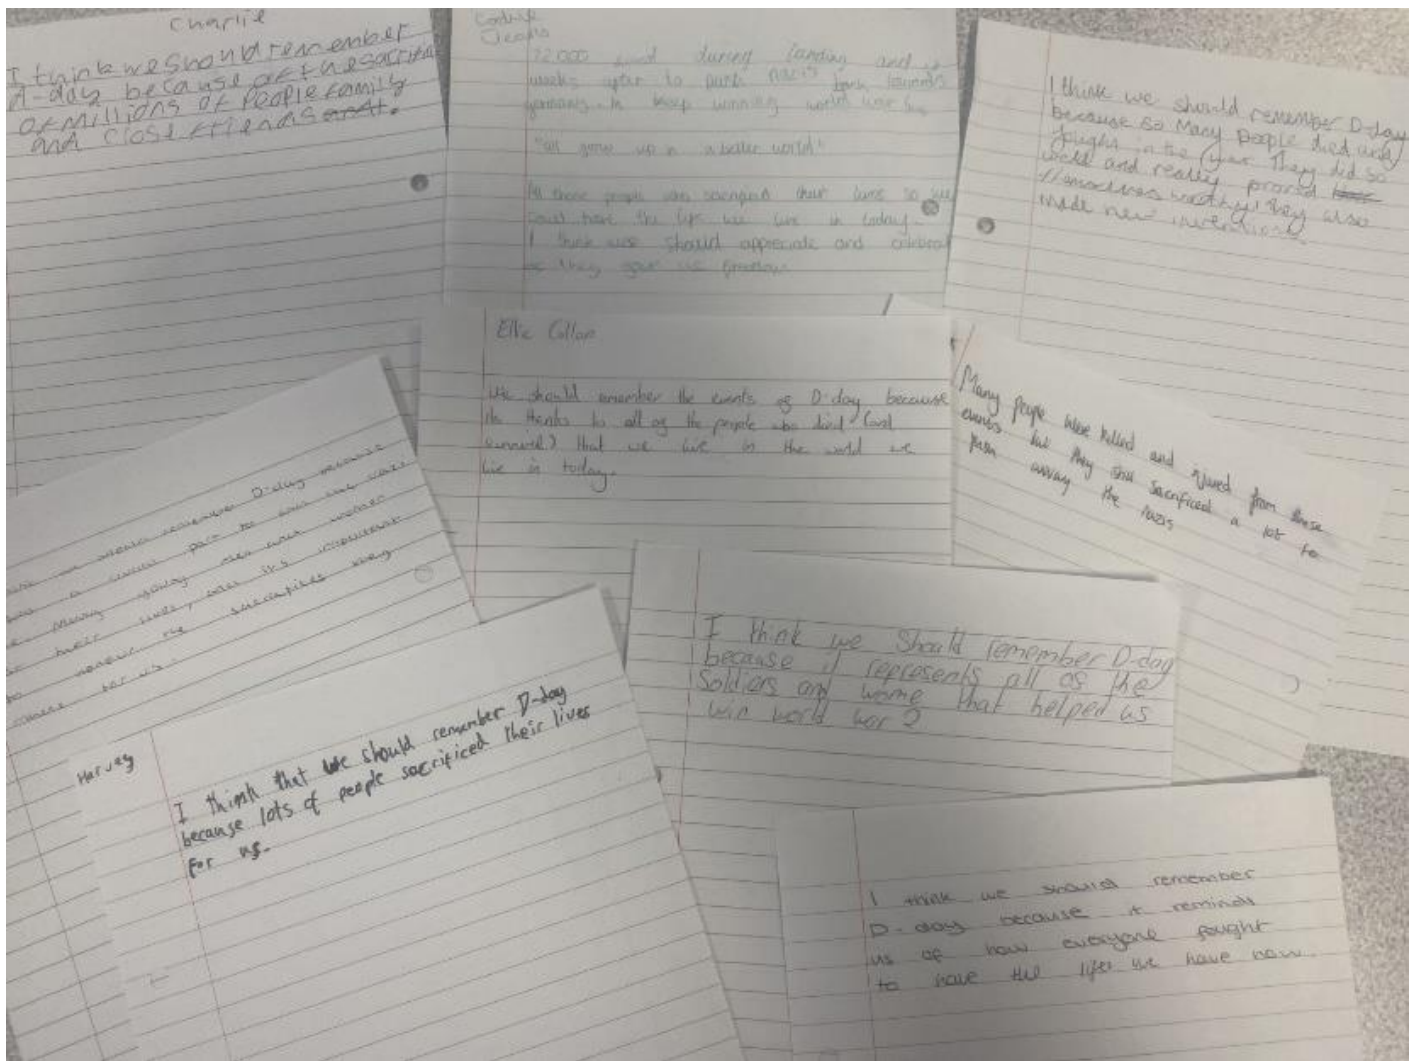 Charlie
I think we should remember
d-day because of the sacrifice
of millions of people family
and close friends
22000 during landing and
weeks after to push nazis back towards
germany. to keep winning world war
"all grow up in a better world"
All those people who sacrificed their lives so we
could have the life we live in today.
I think we should appreciate and celebrate
as they gave us freedom
I think we should remember D-day
because so Many people died and
fought in the war They did so
well and really proved
themselves worthy! they also
made new inventions.
Ellie
We should remember the events of D-day because
its thanks to all of the people who died (and
survived) that we live in the world we
live in today.
Many people were killed and injured from these
events but they still sacrificed a lot to
push away the nazis
we should remember D-day because
a crucial part to win the war.
Many young men and women
their lives, and it's important
to honour the sacrifices they
for us.
I think we Should remember D-day
because it represents all of the
Soldiers and wome that helped us
win world war 2
Harvey
I think that we should remember D-day
because lots of people sacrificed their lives
for us.
I think we should remember
D-day because it reminds
us of how everyone fought
to have the lifes we have now.